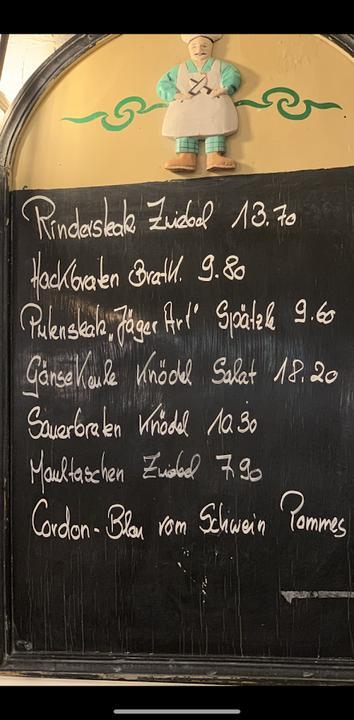 Rindersteak Zwiebel 13.70
Hackbraten Bratk. 9.80
Putensteak „Jäger Art" Spätzle 9.60
Gänsekeule Knödel Salat 18.20
Sauerbraten Knödel 10.30
Maultaschen Zwiebel 7.90
Cordon-Bleu vom Schwein Pommes